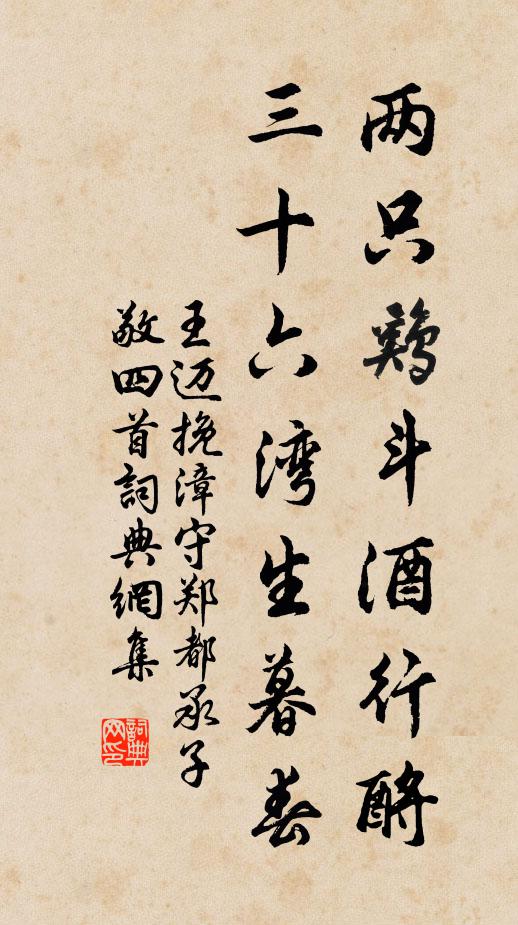 两只鸡斗酒行酹
三十六湾生暮春
王迈挽漳守郑都承子
敬四首詞典網集
詞典网印